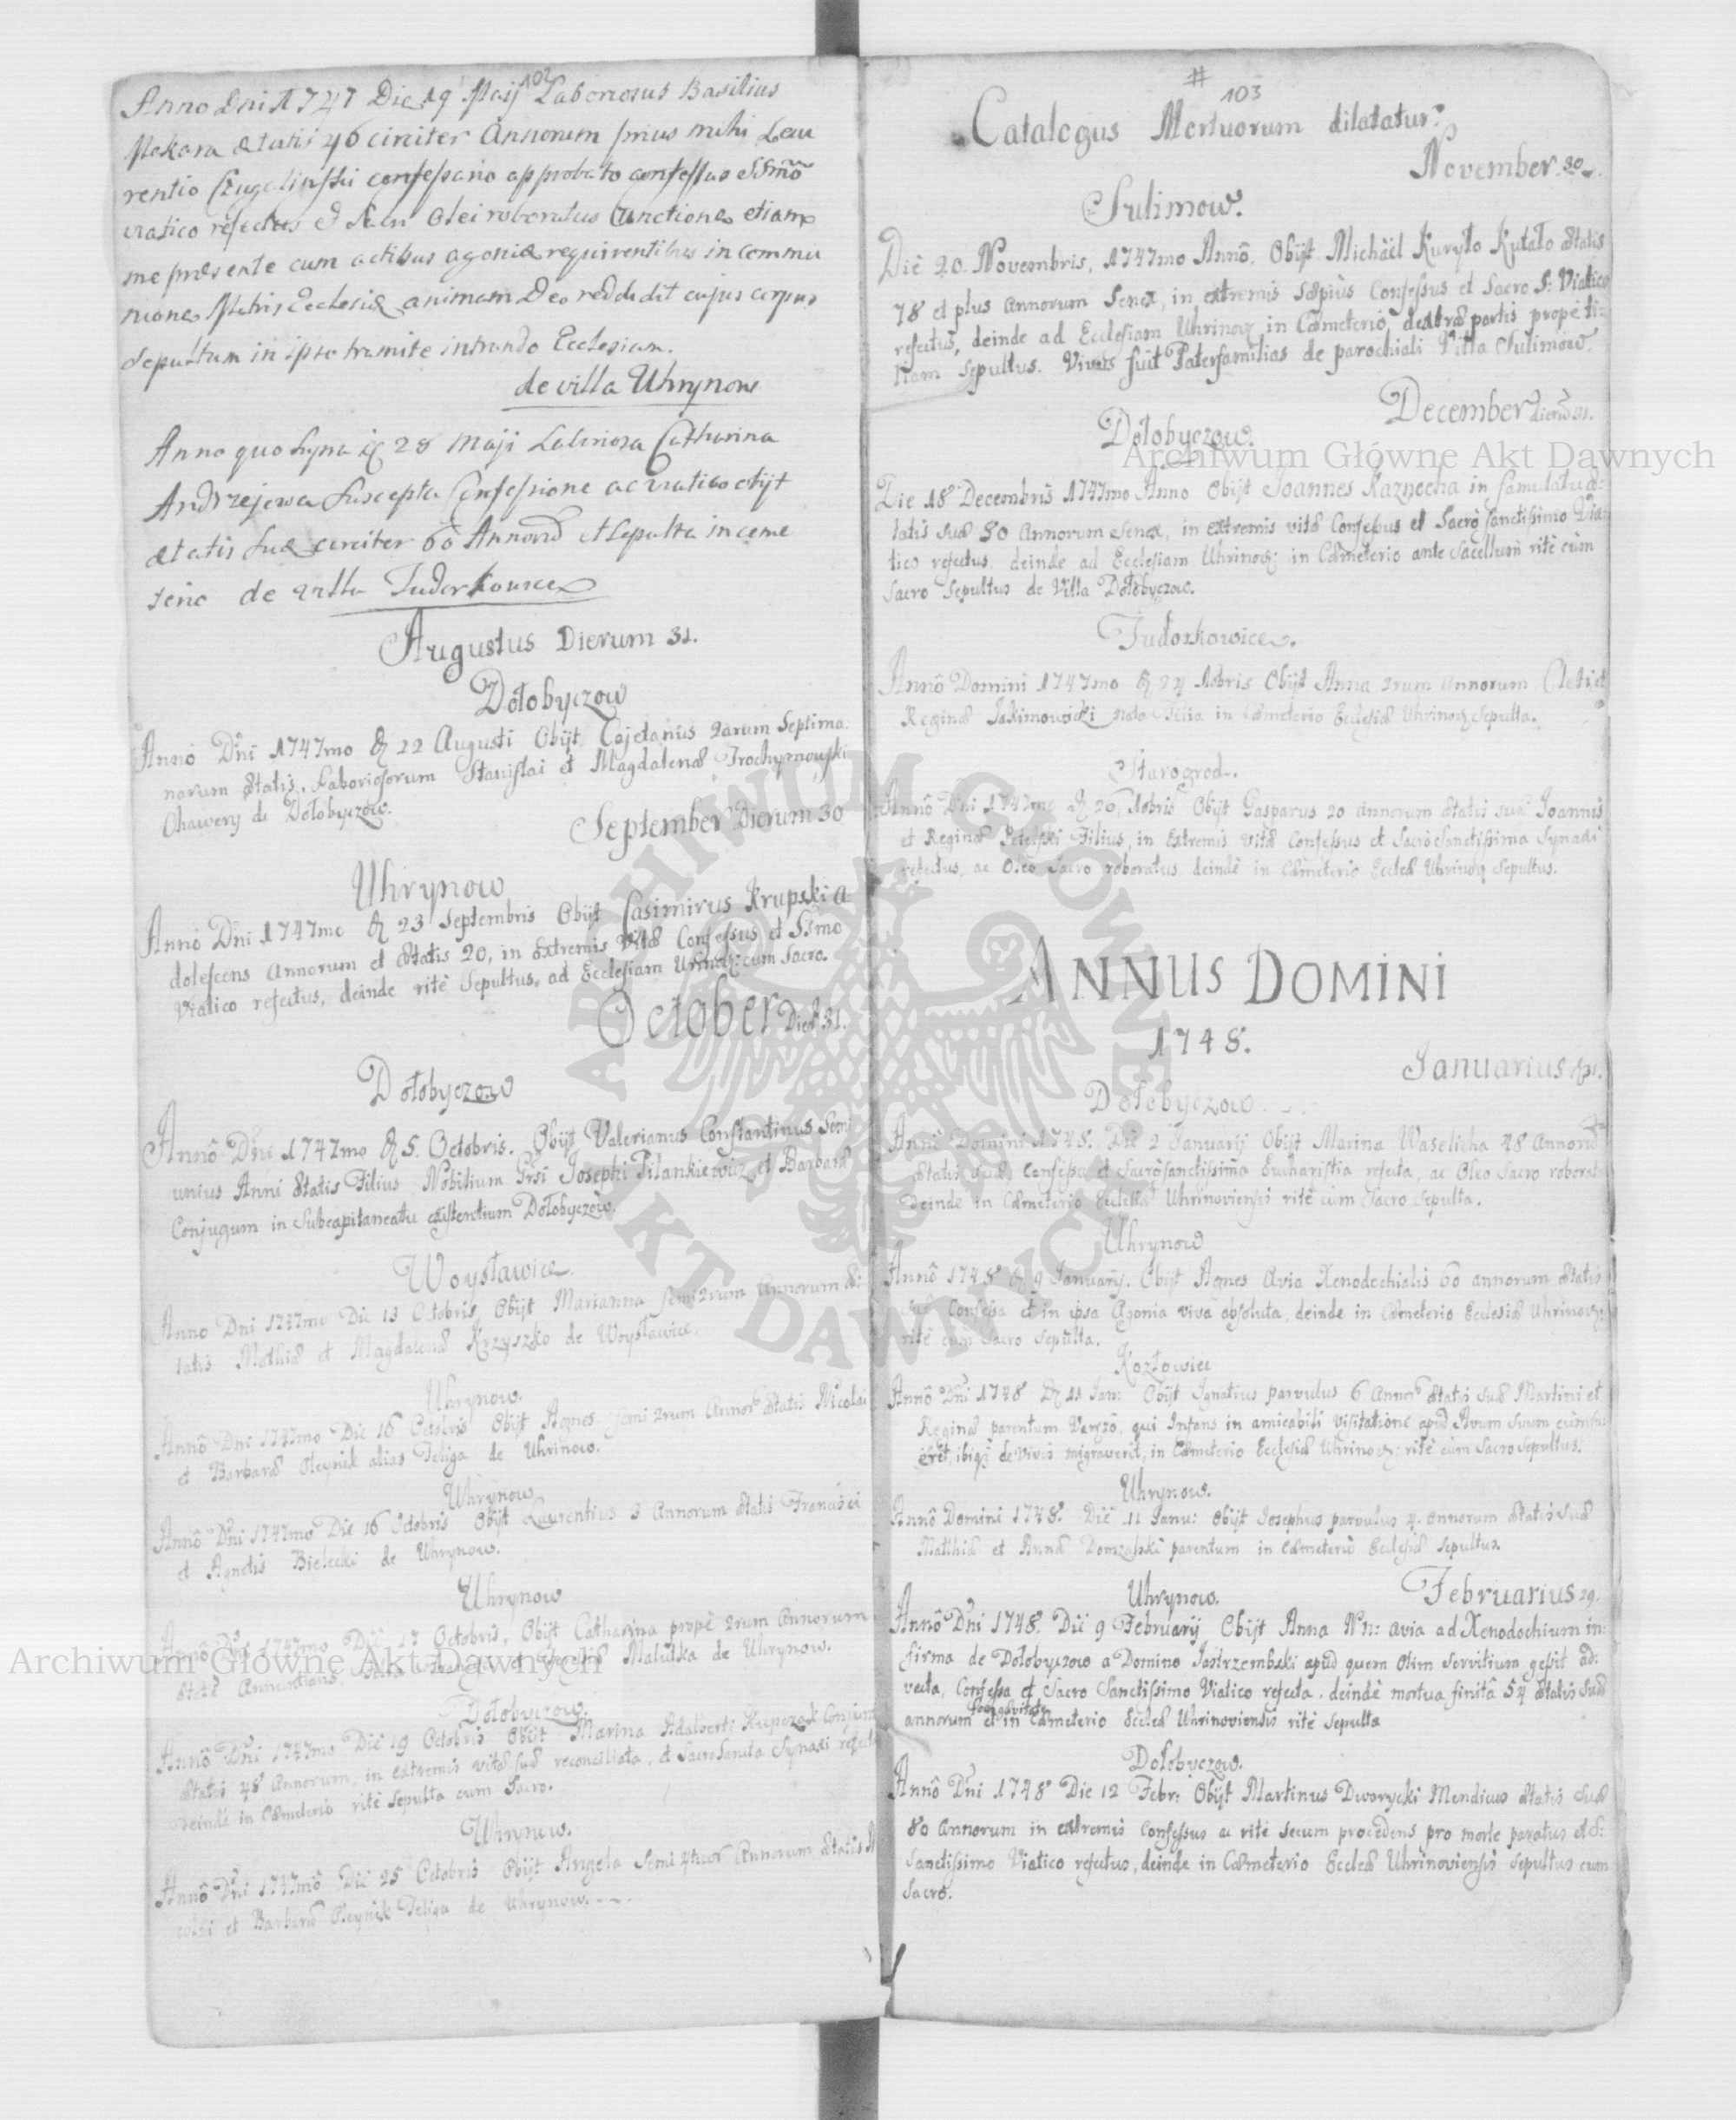 102
Anno Dni 1747 Die 19 Maij Laboriosus Basilius
Makara ætatis 46 circiter Annorum prius mihi Lau
rentio confessario approbato confessus SSmo
viatico refectus et olei roboratus Unctione etiam
me præsente cum actibus agoniæ requirentibus in commu
nione Matris Ecclesiæ animam Deo reddidit cujus corpus
sepultum in ipso tramite intrando Ecclesiam.
de villa Uhrynow
Anno quo supra 28 Maji Laboriosa Catharina
Andrzejowa suscepta Confessione ac viatico obijt
ætatis suæ circiter 60 Annorum et sepulta in ceme
terio de villa Tudorkowice
Augustus Dierum 31.
Dołobyczow
Annô Dni 1747mo 22 Augusti Obijt Cajetanus 2arum Septima
narum Ætatis, Laboriosorum Stanislai et Magdalenæ Trochymowski
de Dołobyczow.
September Dierum 30
Uhrynow
Annô Dni 1747mo 23 Septembris Obijt Casimirus Krupski a
dolescens Annorum et Ætatis 20, in Extremis Vitæ Confessus et SSmo
Viatico refectus, deinde ritè Sepultus, ad Ecclesiam Uhrinov: cum Sacro.
October Dier 31.
Dołobyczow
Annô Dni 1747mo 5. Octobris. Obijt Valerianus Constantinus Semi
unius Anni Ætatis Filius Nobilium Josephi Pilankiewicz et Barbaræ
Conjugum in Subcapitaneatu existentium Dołobyczów.
Woysławice.
Anno Dni 1747mo Die 13 Octobris, Obijt Marianna Semi 2rum Annorum Æ
tatis Mathiæ et Magdalenæ Krzyszko de Woysławice.
Uhrynow.
Annô Dni 1747mo Die 16 Octobris Obijt Agnes Semi 2rum Annor Ætatis Nicolai
et Barbaræ Oleynik alias Teliga de Uhrinow.
Uhrynow
Annô Dni 1747mo Die 16 Octobris Obijt Laurentius 3 Annorum Ætatis Francisci
et Agnetis Bielecki de Uhrynow.
Uhrynow
Annô Dni 1747mo Die 17 Octobris, Obijt Catharina propè 2rum Annorum
Malutka de Uhrynow.
Dołobyczow.
Annô Dni 1747mo Die 19 Octobris Obijt Marina Adalberti Krupczak
Ætatis 48 Annorum, in extremis vitæ suæ reconciliata, et SacroSancta Synaxi
deinde in Cæmeterio ritè sepulta cum Sacro.
Uhrynow.
Annô Dni 1747mô Die 25 Octobris Obijt Angela Semi Annorum Ætatis
et Barbaræ Oleynik Teliga de Uhrynow.
#
103
Catalogus Mortuorum dilatatur.
November 30.
Sulimow.
Diè 20. Novembris, 1747mo Annô. Obijt Michäel Kuryło Kutało Ætatis
78 et plus Annorum Senex, in extremis sæpius Confessus et Sacro S: Viatico
refectus, deinde ad Ecclesiam Uhrinov in Cæmeterio dextræ partis propè ti:
liam Sepultus. Vivus fuit Paterfamilias de parochiali Villa Sulimów.
December dierum 31.
Dołobyczow.
Die 18 Decembris 1747mo Anno Obijt Joannes Kaznocha in famulatu æ:
tatis suæ 80 Annorum Senex, in extremis vitæ Confessus et Sacro Sanctissimo Via
tico refectus, deinde ad Ecclesiam Uhrinov: in Cæmeterio ante Sacellum ritè cum
Sacro Sepultus de Villa Dołobyczow.
Tudorkowice.
Annô Domini 1747mo 24 Xbris Obijt Anna 2rum Annorum
Reginæ Jakimowicki nata Filia in Cæmeterio Ecclesiæ Uhrinov Sepulta.
Starogrod.
Annô Dni 1747mo 26 Xbris Obijt Gasparus 20 Annorum Ætatis suæ Joannis
et Reginæ Filius, in Extremis Vitæ Confessus et SacroSanctissima Synaxi
refectus, ac Oleo Sacro roboratus deindè in Cæmeterio Eccleæ Uhrinov Sepultus.
ANNUS DOMINI
1748.
Januarius 31.
Dołobyczow
Annô Domini 1748. Die 2 Januarij Obijt Marina Waselicha 48 Annorum
Ætatis suæ, Confessa et SacroSanctissima Eucharistia refecta, ac Oleo Sacro roborata
deinde in Cæmeterio Uhrinoviensis ritè cum Sacro sepulta.
Uhrynow
Annô 1748 9 Januarij. Obijt Agnes Avia Xenodochialis 60 annorum Ætatis
suæ Confessa et in ipsa Agonia viva absoluta, deinde in Cæmeterio Ecclesiæ Uhrinov:
ritè cum Sacro Sepulta.
Kozłowiec
Annô Dni 1748 11 Jan: Obijt Ignatius parvulus 6 Annor Ætatis suæ Martini et
Reginæ parentum qui Infans in amicabili visitatione apud Avum suum
ibiq de Vivis migraverit, in Cæmeterio Ecclesiæ Uhrinov: ritè cum Sacro Sepultus.
Uhrynow.
Annô Domini 1748. Die 11 Janu: Obijt Josephus parvulus 4. Annorum Ætatis Suæ
Matthiæ et Annæ Domzalski parentum in Cæmeteriô Ecclesiæ Sepultus.
Uhrynow.
Februarius 29.
Annô Dni 1748. Diè 9 Februarij Obijt Anna Nn: avia ad Xenodochium in:
firma de Dołobyczow a Domino Jastrzembski apud quem Olim Servitium gessit ad:
vecta, Confessa et Sacro Sanctissimo Viatico refecta, deindè mortua finitâ 54 Ætatis suæ
longævitate
annorum et in Cæmeterio Eccleæ Uhrinoviensis ritè sepulta
Dołobyczow.
Annô Dni 1748 Die 12 Febr: Obijt Martinus Dworycki Mendicus Ætatis Suæ
80 Annorum in extremis Confessus ac ritè secum procedens pro morte paratus et S:
Sanctissimo Viatico refectus, deinde in Cæmeterio Eccleæ Uhrinoviensis sepultus cum
Sacro.
Archiwum Główne Akt Dawnych
Archiwum Główne Akt Dawnych
ARCHIWUM GŁÓWNE AKT DAWNYCH